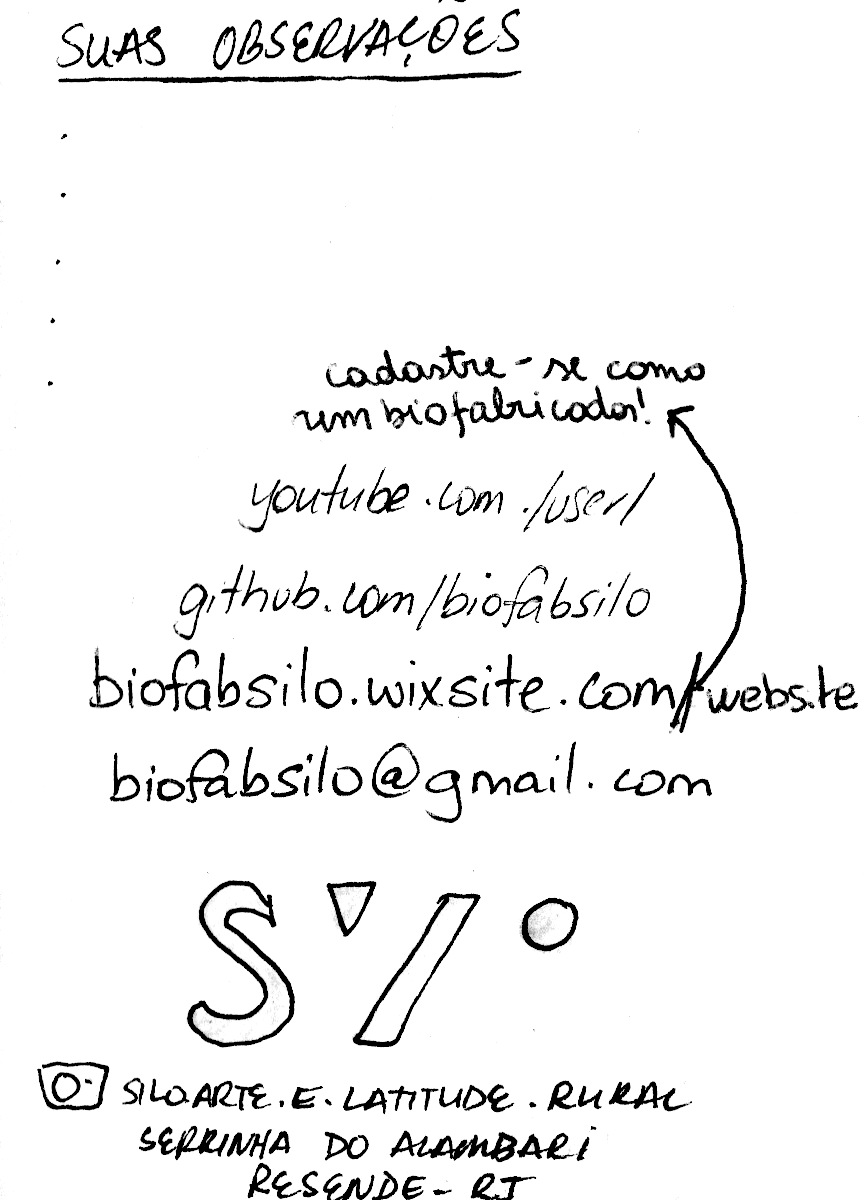 SUAS OBSERVAÇÕES
cadastre-se como
um biofabricador!
youtube.com./user/
github.com/biofabsilo
biofabsilo.wixsite.com/website
biofabsilo@gmail.com
S / °
SILO.ARTE.E.LATITUDE.RURAL
SERRINHA DO ALAMBARI
RESENDE - RJ